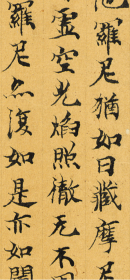 羅尼猶如日藏摩尼
虛空光焰照徹无不周
羅尼亦復如是亦如閻